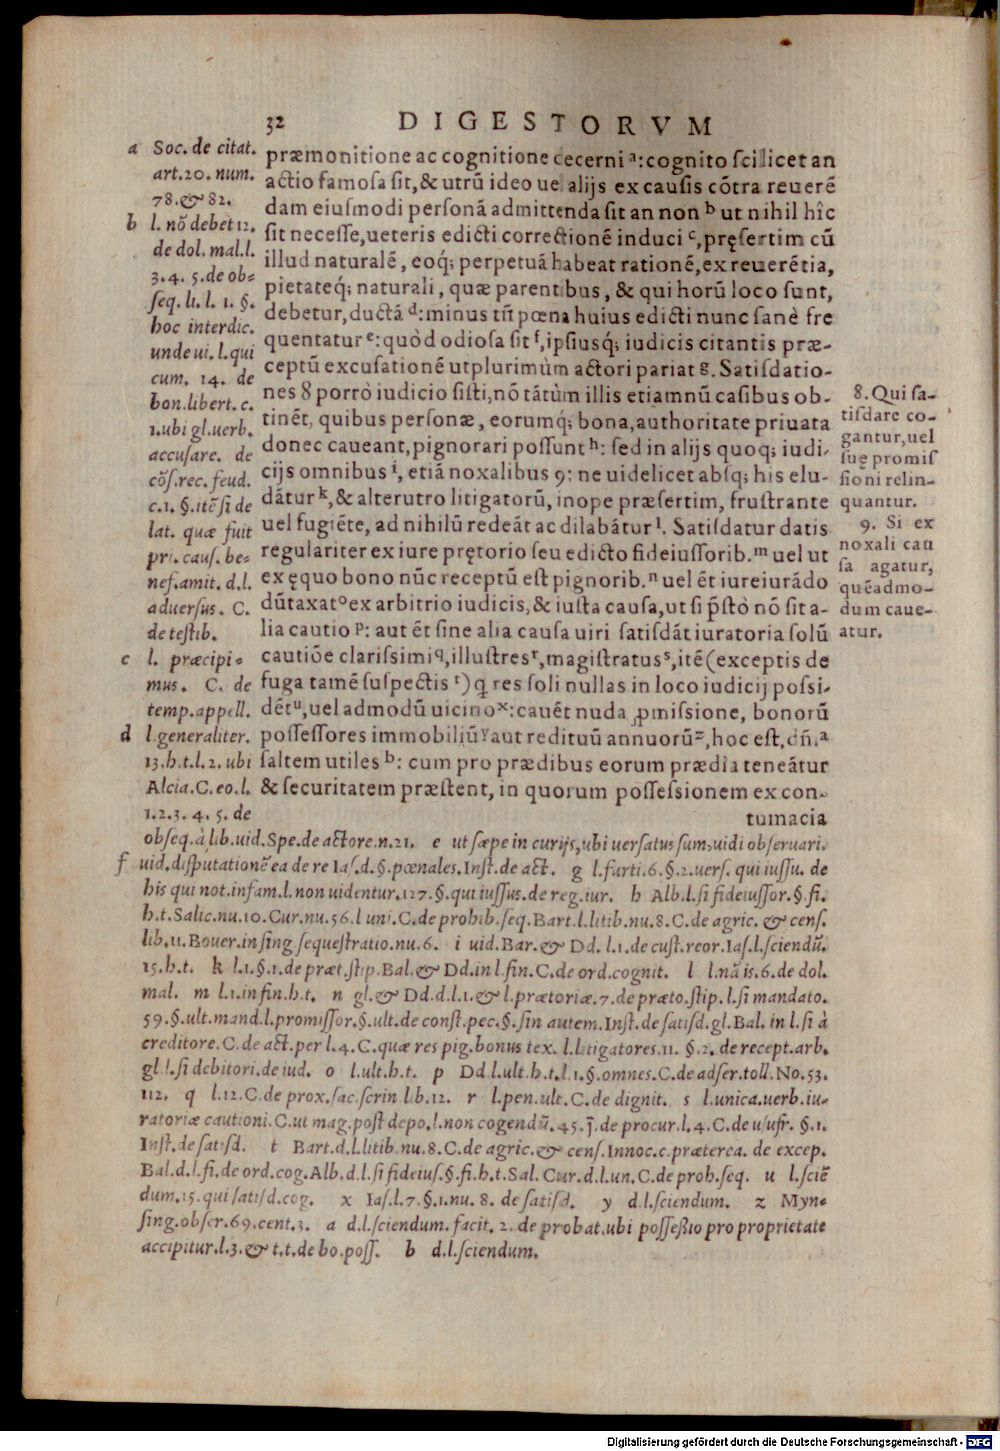 32 DIGESTORVM
præmonitione ac cognitione cecerni ª: cognito scilicet an
actio famosa sit, & utrũ ideo uel alijs ex causis cõtra reuerẽ
dam eiusmodi personã admittenda sit an non ᵇ ut nihil hîc
sit necesse, ueteris edicti correctionẽ induci ᶜ, pręsertim cũ
illud naturalẽ, eoq́; perpetuã habeat rationẽ, ex reuerẽtia,
pietateq́; naturali, quæ parentibus, & qui horũ loco sunt,
debetur, ductã ᵈ: minus tñ pœna huius edicti nunc sanè fre
quentatur ᵉ: quòd odiosa sit ᶠ, ipsiusq́; iudicis citantis præ-
ceptũ excusationẽ utplurimùm actori pariat ᵍ. Satisdatio-
nes 8 porrò iudicio sisti, nõ tãtùm illis etiamnũ casibus ob-
tinẽt, quibus personæ, eorumq́; bona, authoritate priuata
donec caueant, pignorari possunt ʰ: sed in alijs quoq; iudi-
cijs omnibus ⁱ, etiã noxalibus 9: ne uidelicet absq; his elu-
dãtur ᵏ, & alterutro litigatorũ, inope præsertim, frustrante
uel fugiẽte, ad nihilũ redeãt ac dilabãtur ˡ. Satisdatur datis
regulariter ex iure prętorio seu edicto fideiussorib. ᵐ uel ut
ex ęquo bono nũc receptũ est pignorib. ⁿ uel ẽt iureiurãdo
dũtaxat ᵒ ex arbitrio iudicis, & iusta causa, ut si p̃stò nõ sit a-
lia cautio ᵖ: aut ẽt sine alia causa uiri satisdãt iuratoria solũ
cautiõe clarissimi ᑫ, illustres ʳ, magistratus ˢ, itẽ (exceptis de
fuga tamẽ suspectis ᵗ) q res soli nullas in loco iudicij possi-
dẽt ᵘ, uel admodũ uicino ˣ: cauẽt nuda ꝓmissione, bonorũ
possessores immobiliũ ʸ aut redituũ annuorũ ᶻ, hoc est, dñi ª
saltem utiles ᵇ: cum pro prædibus eorum prædia teneãtur
& securitatem præstent, in quorum possessionem ex con-
tumacia
a Soc. de citat.
art. 20. num.
78. & 82.
b l. nõ debet 12.
de dol. mal. l.
3. 4. 5. de ob-
seq. li. l. 1. §.
hoc interdic.
unde ui. l. qui
cum. 14. de
bon. libert. c.
1. ubi gl. uerb.
accusare. de
cõs. rec. feud.
c. 1. §. itẽ si de
lat. quæ fuit
pri. caus. be-
nef. amit. d. l.
aduersus. C.
de testib.
c l. præcipi-
mus. C. de
temp. appell.
d l. generaliter.
13. h. t. l. 2. ubi
Alcia. C. eo. l.
1. 2. 3. 4. 5. de
8. Qui sa-
tisdare co-
gantur, uel
suę promis
sioni relin-
quantur.
9. Si ex
noxali cau
sa agatur,
quẽadmo-
dum caue-
atur.
obseq. à lib. uid. Spe. de actore. n. 21. e ut sæpe in curijs, ubi uersatus sum, uidi obseruari.
f uid. disputationẽ ea de re Ias. d. §. pœnales. Inst. de act. g l. furti. 6. §. 2. uers. qui iussu. de
his qui not. infam. l. non uidentur. 127. §. qui iussus. de reg. iur. h Alb. l. si fideiussor. §. fi.
h. t. Salic. nu. 10. Cur. nu. 56. l uni. C. de prohib. seq. Bart. l. litib. nu. 8. C. de agric. & cens.
lib. 11. Bouer. in sing. sequestratio. nu. 6. i uid. Bar. & Dd. l. 1. de cust. reor. Ias. l. sciendũ.
15. h. t. k l. 1. §. 1. de præt. stip. Bal. & Dd. in l. fin. C. de ord. cognit. l l. nã is. 6. de dol.
mal. m l. 1. in fin. h. t. n gl. & Dd. d. l. 1. & l. prætoriæ. 7. de præto. stip. l. si mandato.
59. §. ult. mand. l. promissor. §. ult. de const. pec. §. sin autem. Inst. de satisd. gl. Bal. in l. si à
creditore. C. de act. per l. 4. C. quæ res pig. bonus tex. l. litigatores. 11. §. 2. de recept. arb.
gl. l. si debitori. de iud. o l. ult. h. t. p Dd. l. ult. h. t. l. 1. §. omnes. C. de adser. toll. No. 53.
112. q l. 12. C. de prox. sac. scrin. l. b. 12. r l. pen. ult. C. de dignit. s l. unica. uerb. iu-
ratoriæ cautioni. C. ut mag. post depo. l. non cogendũ. 45. j̃. de procur. l. 4. C. de usufr. §. 1.
Inst. de satisd. t Bart. d. l. litib. nu. 8. C. de agric. & cens. Innoc. c. præterea. de excep.
Bal. d. l. fi. de ord. cog. Alb. d. l. si fideius. §. fi. h. t. Sal. Cur. d. l. un. C. de proh. seq. u l. sciẽ
dum. 15. qui satisd. cog. x Ias. l. 7. §. 1. nu. 8. de satisd. y d. l. sciendum. z Myn-
sing. obser. 69. cent. 3. a d. l. sciendum. facit. 2. de probat. ubi possessio pro proprietate
accipitur. l. 3. & t. t. de bo. poss. b d. l. sciendum.
Digitalisierung gefördert durch die Deutsche Forschungsgemeinschaft - DFG